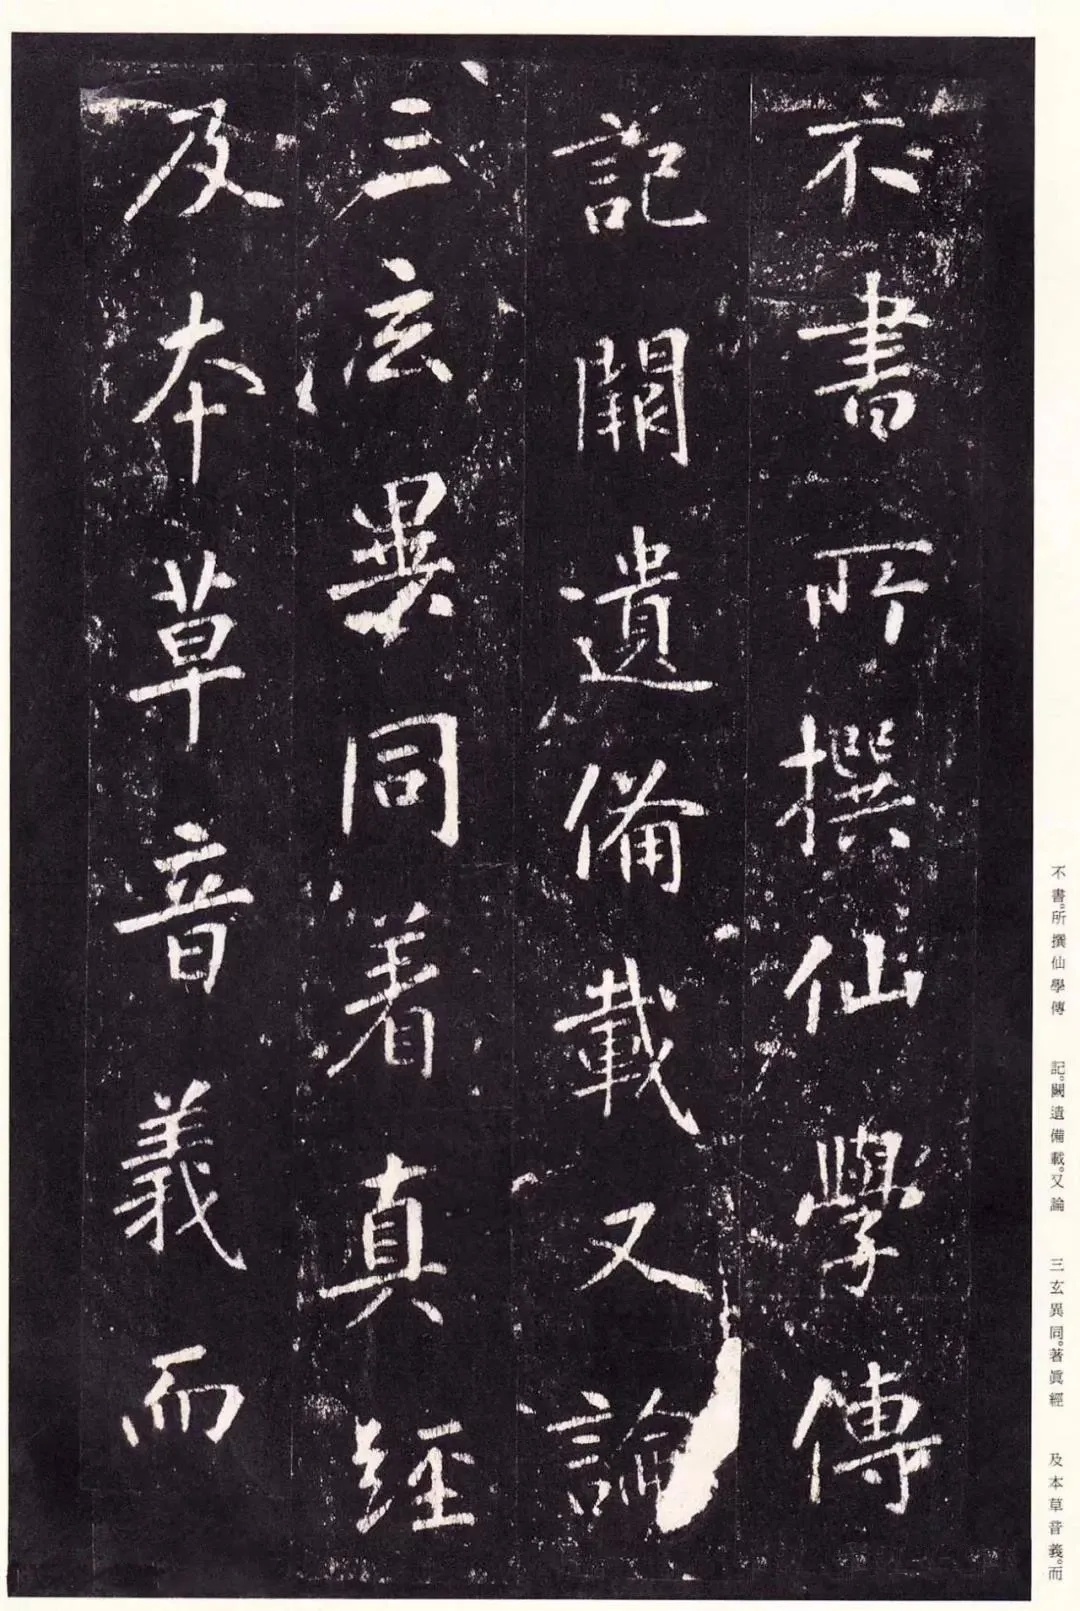 不書所撰仙學傳
記闕遺備載又論
三玄異同着真經
及本草音義而
不書。所撰仙學傳 記。闕遺備載。又論 三玄異同。著眞經 及本草音義。而